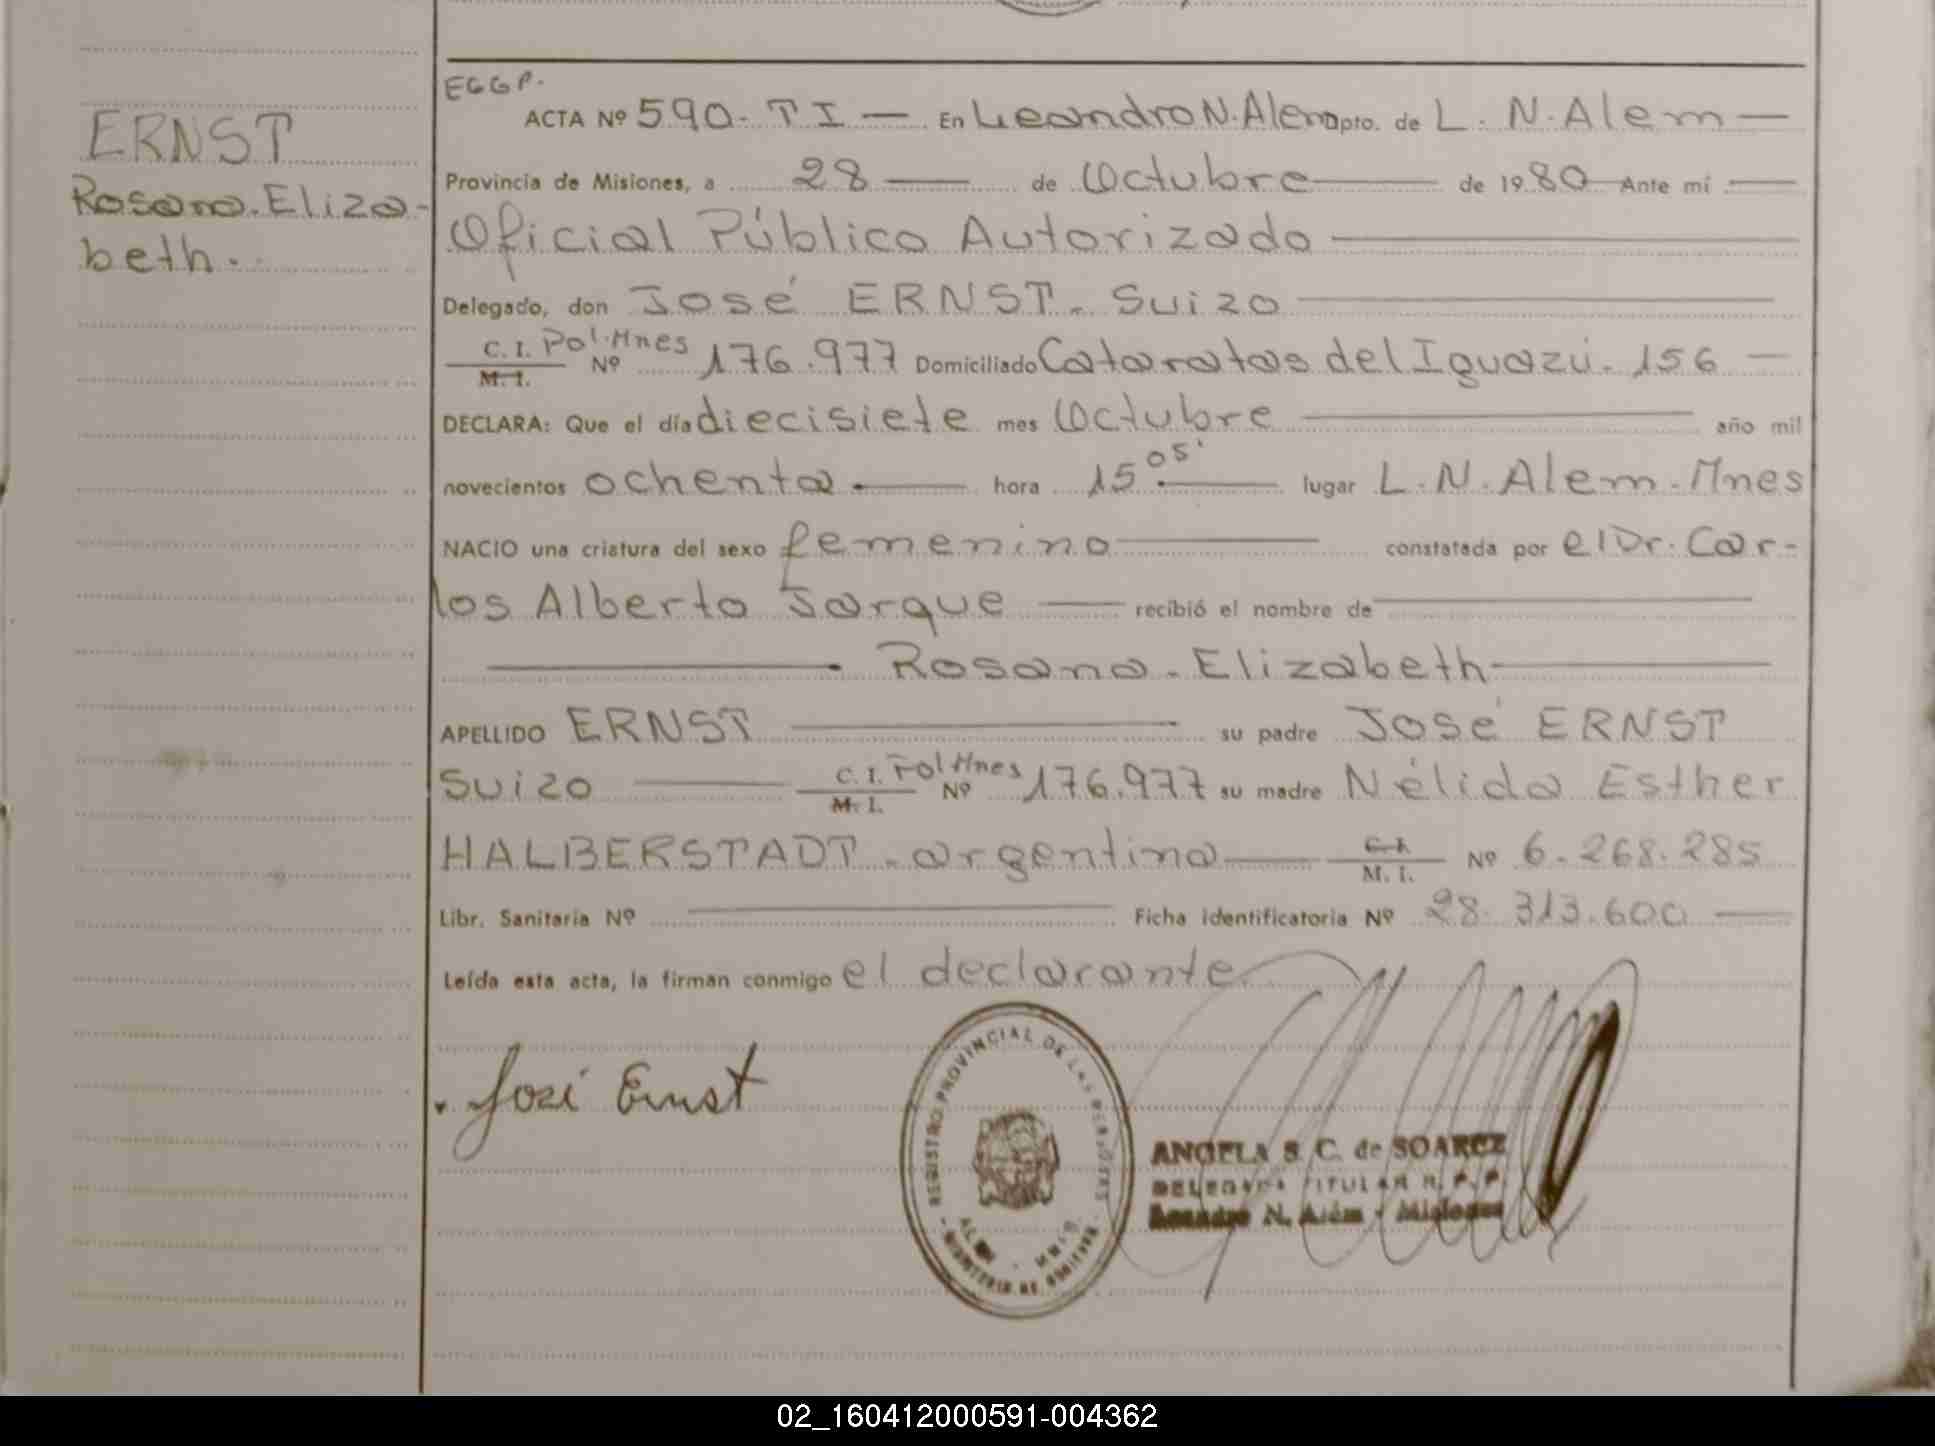 ERNST
Rosana-Eliza-
beth.
EGGP.
ACTA Nº 590- T I — En Leandro N. Alem Dpto. de L. N. Alem —
Provincia de Misiones, a 28 — de Octubre — de 1980 Ante mí —
Oficial Público Autorizado —
Delegado, don José ERNST - Suizo —
C. I. Pol. Mnes
M. I. Nº 176.977 Domiciliado Cataratas del Iguazú - 156 —
DECLARA: Que el día diecisiete mes Octubre — año mil
novecientos ochenta . — hora 15 05' — lugar L. N. Alem - Mnes
NACIO una criatura del sexo femenino — constatada por el Dr. Car-
los Alberto Jarque — recibió el nombre de —
— Rosana - Elizabeth —
APELLIDO ERNST — su padre José ERNST
Suizo — C. I. Pol Mnes
M. I. Nº 176.977 su madre Nélida Esther
HALBERSTADT - argentina — C. I.
M. I. Nº 6.268.285
Libr. Sanitaria Nº — Ficha identificatoria Nº 28.313.600 —
Leída esta acta, la firman conmigo el declarante
José Ernst
REGISTRO PROVINCIAL DE LAS PERSONAS
ALEM - MNES
MINISTERIO DE GOBIERNO
ANGELA S. C. de SOAREZ
DELEGADA TITULAR R. P. P.
Leandro N. Alem - Misiones
02_160412000591-004362